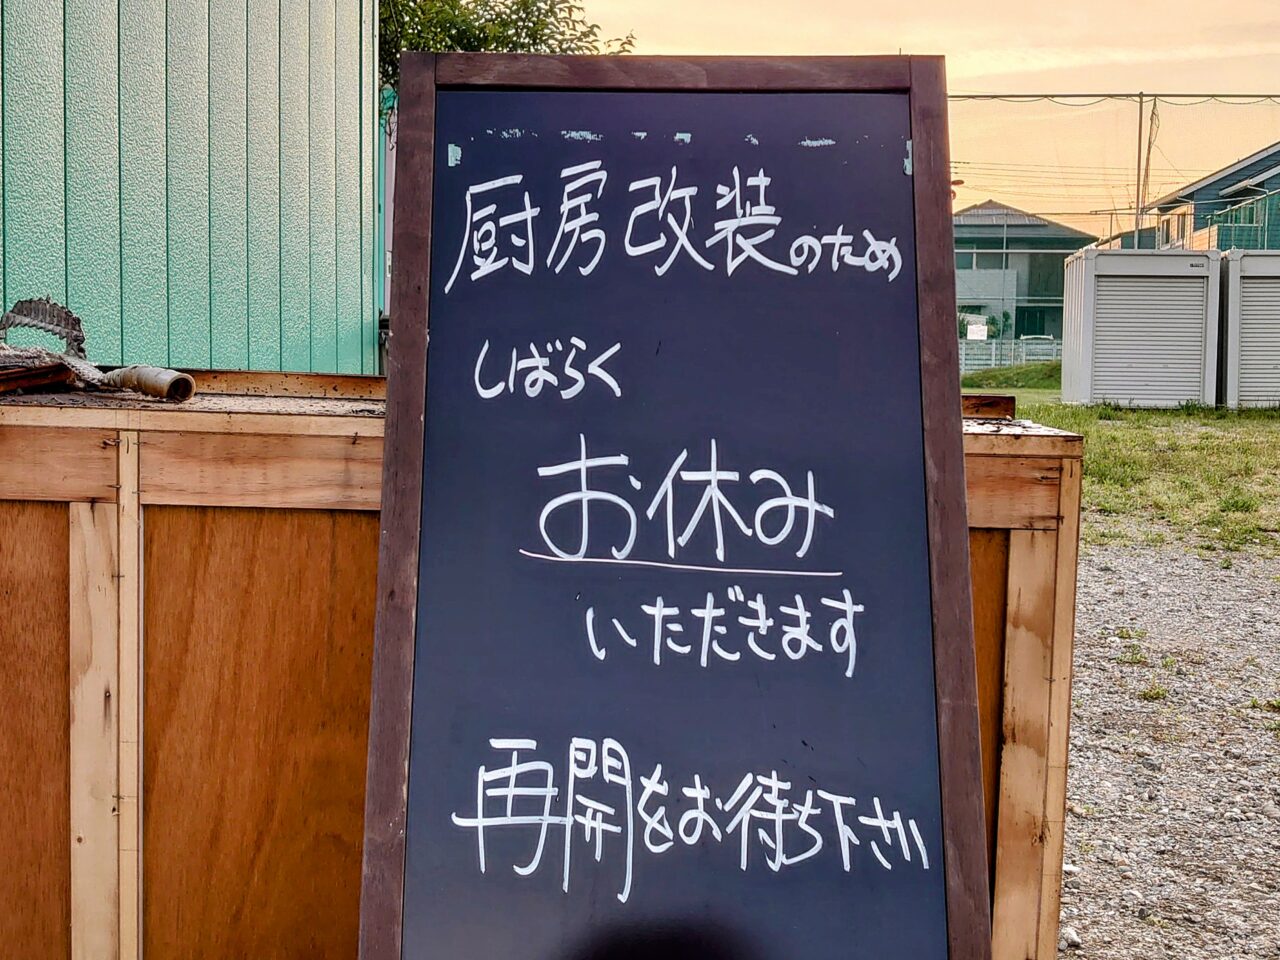 厨房改装のため
しばらく
お休み
いただきます
再開をお待ち下さい